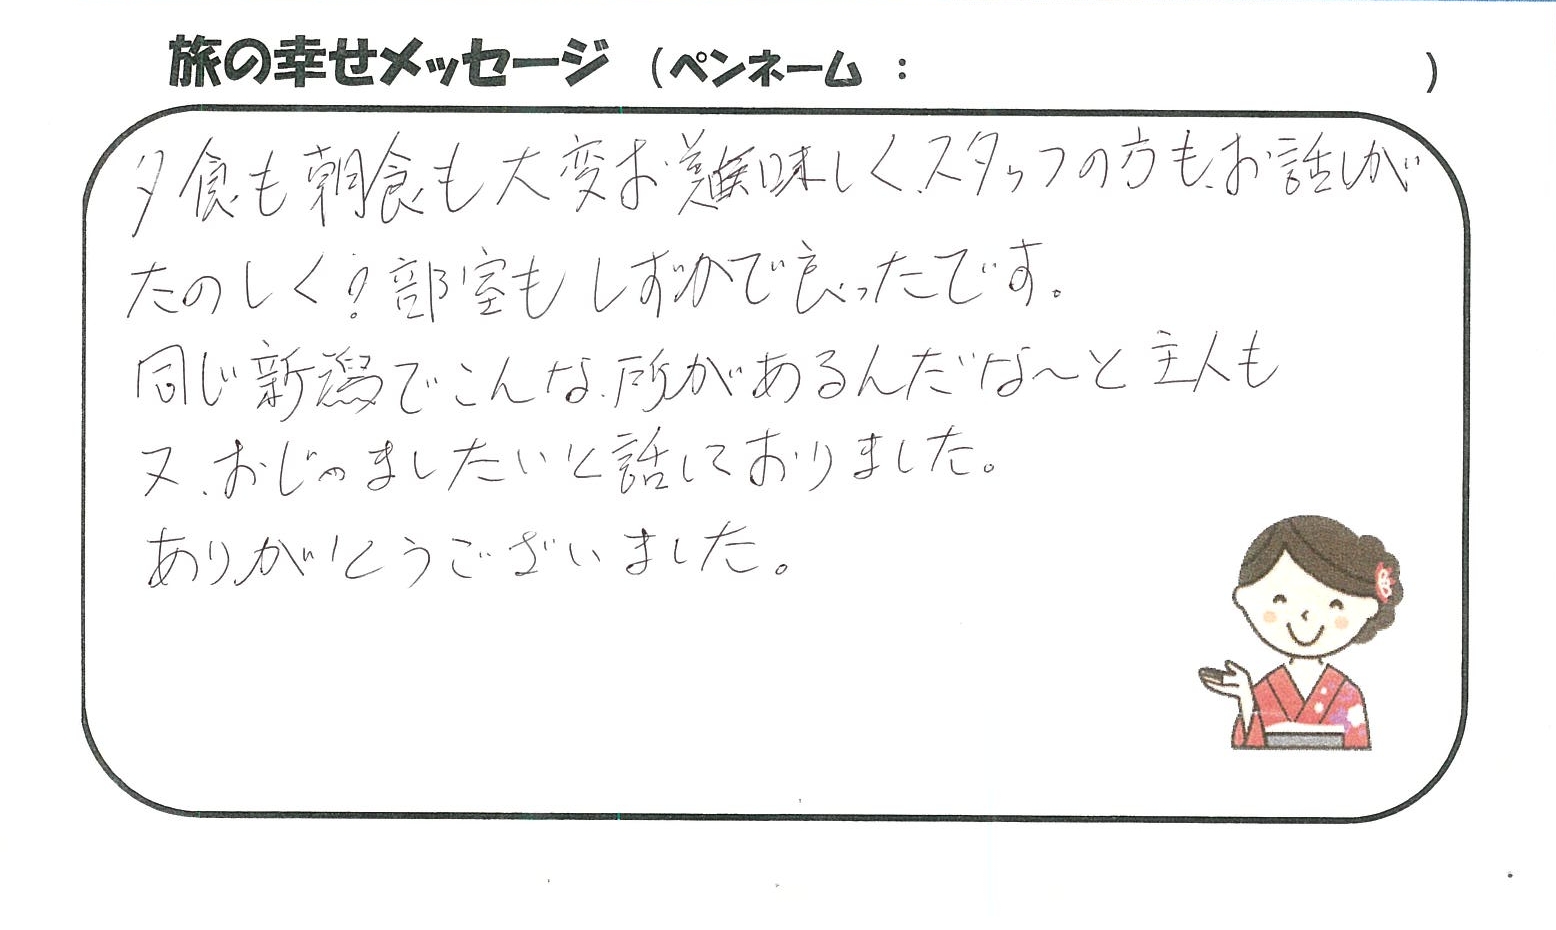 旅の幸せメッセージ (ペンネーム : )
夕食も朝食も大変お美味しく、スタッフの方も、お話しが
たのしく?部室もしずかで良ったです。
同じ新潟でこんな所があるんだな〜と主人も
又、おじゃましたいと話しておりました。
ありがとうございました。